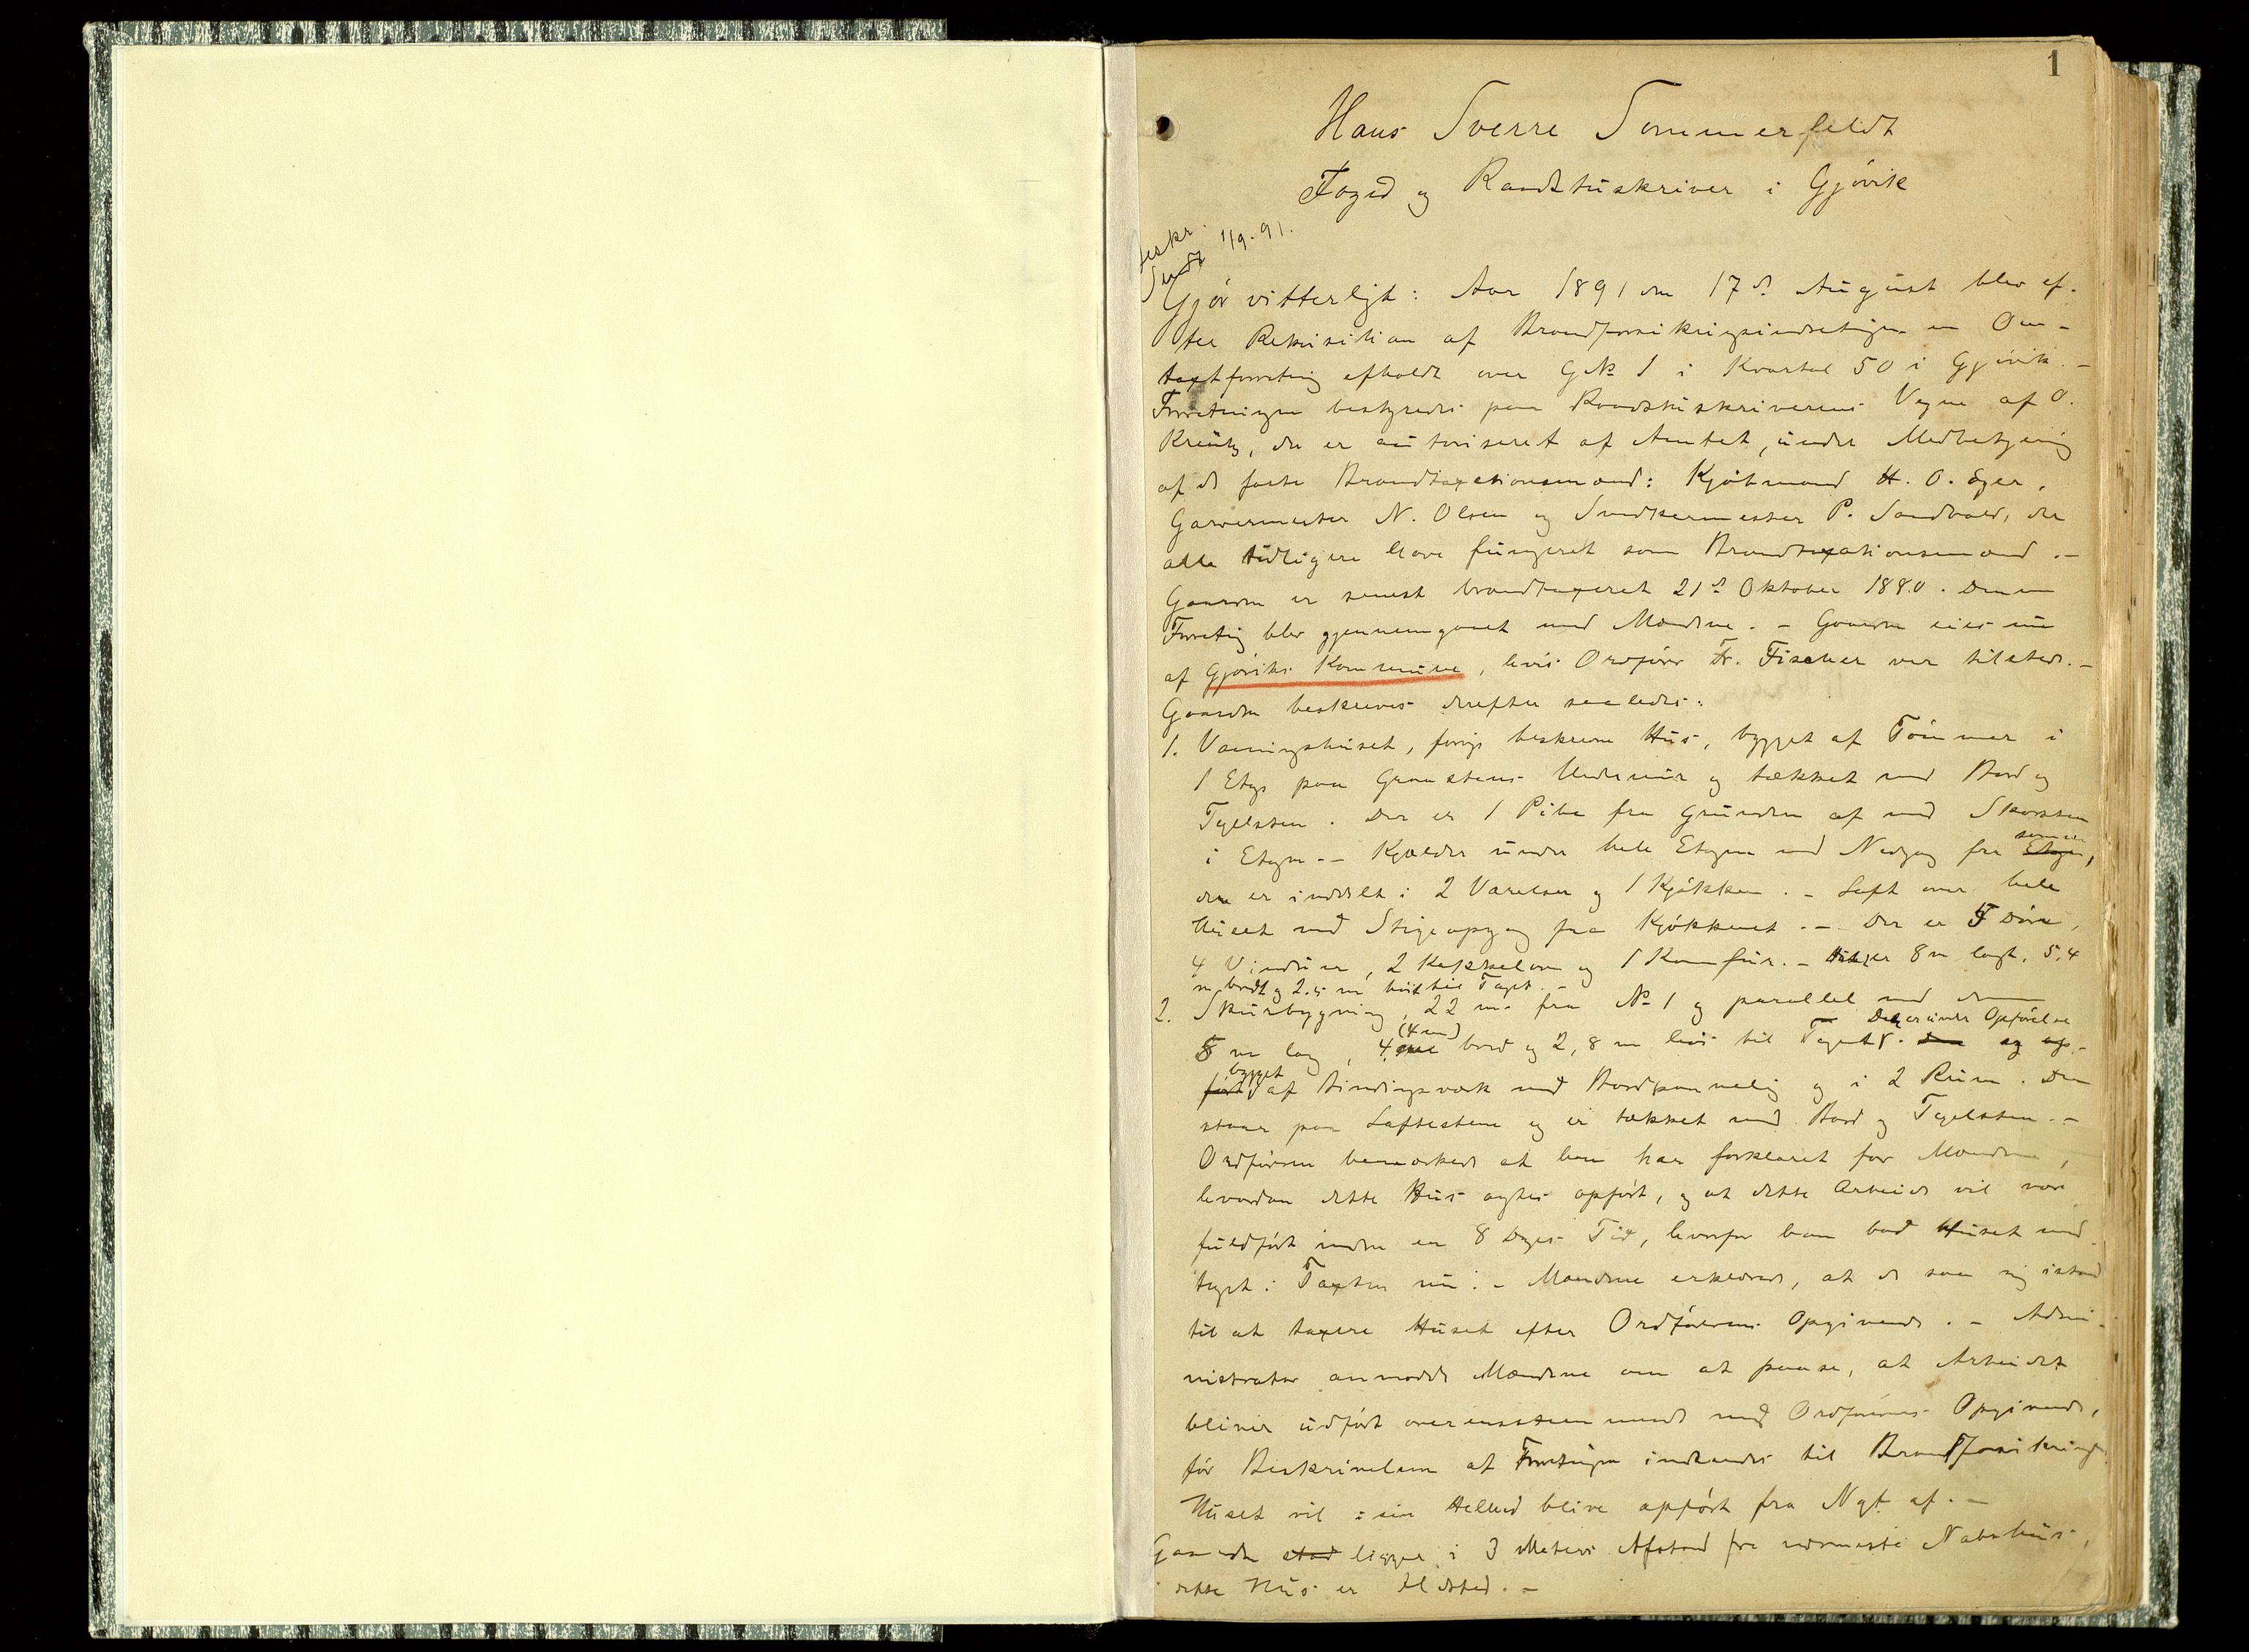 1
Hans Sverre Sommerfeldt
Foged og Raadstuskriver i Gjøvik
Beskr.
Sendt 1/9-91.
Gjør vitterligt: Aar 1891 den 17de August blev ef-
ter Rekvisition af Brandforsikringsindretningen en Om-
taxtforretning afholdt over G. No 1 i Kvartal 50 i Gjøvik. -
Forretningen bestyredes paa Raadstuskriverens Vegne af O.
Kreutz, der er autoriseret af Amtet, under Medbetjening
af de faste Brandtaxationsmænd: Kjøbmand H. O. Eger,
Garvermester N. Olsen og Snedkermester P. Sandvold, der
alle tidligere have fungeret som Brandtaxationsmænd. -
Gaarden er senest brandtaxeret 21de Oktober 1880. Denne
Forretning blev gjennemgaaet med Mændene. - Gaarden eies nu
af Gjøviks Kommune, hvis Ordfører Fr. Fischer var tilstede. -
Gaarden beskrives derefter saaledes:
1. Vaaningshuset, forrige beskrevne Hus, bygget af Tømmer i
1 Etage paa Graastens Undermur og tækket med Bord og
Teglsten. Der er 1 Pibe fra Grunden af med Skorsten
i Etagen. - Kjælder under hele Etagen med Nedgang fra Etagen,
som er
den er inddelt i 2 Værelser og 1 Kjøkken. - Loft over hele
Huset med Stigeopgang fra Kjøkkenet. - Der er 5 Døre,
4 Vinduer, 2 Kakkelovne og 1 Komfur. - Huset er 8 m langt, 5,4
m bredt og 2,5 m høit til Taget. -
2. Skurbygning, 22 m fra No 1 og parallel med denne
Den er under Opførelse
(4 m)
5 m lang, 4 bred og 2,8 m høi til Taget. Den er op-
bygget
ført af Bindingsværk med Bordpanneling og i 2 Rum. Den
staar paa Løftestene og er tækket med Bord og Teglsten. -
Ordføreren bemærkede at han har forklaret for Mændene,
hvordan dette Hus agtes opført, og at dette Arbeide vil være
fuldført inden en 8 Dages Tid, hvorfor han bad Huset med-
taget i Taxten nu. - Mændene erklærede, at de saa sig istand
til at taxere Huset efter Ordførerens Opgivende. - Admi-
nistrator anmodede Mændene om at paase, at Arbeidet
bliver udført overensstemmende med Ordførerens Opgivende,
før Beskrivelsen af Forretningen indsendes til Brandforsikringen.
Huset vil i sin Helhed blive opført fra Nyt af. -
Gaarden stod ligger i 3 Meters Afstand fra nærmeste Nabohus,
i dette Hus er Ildsted. -